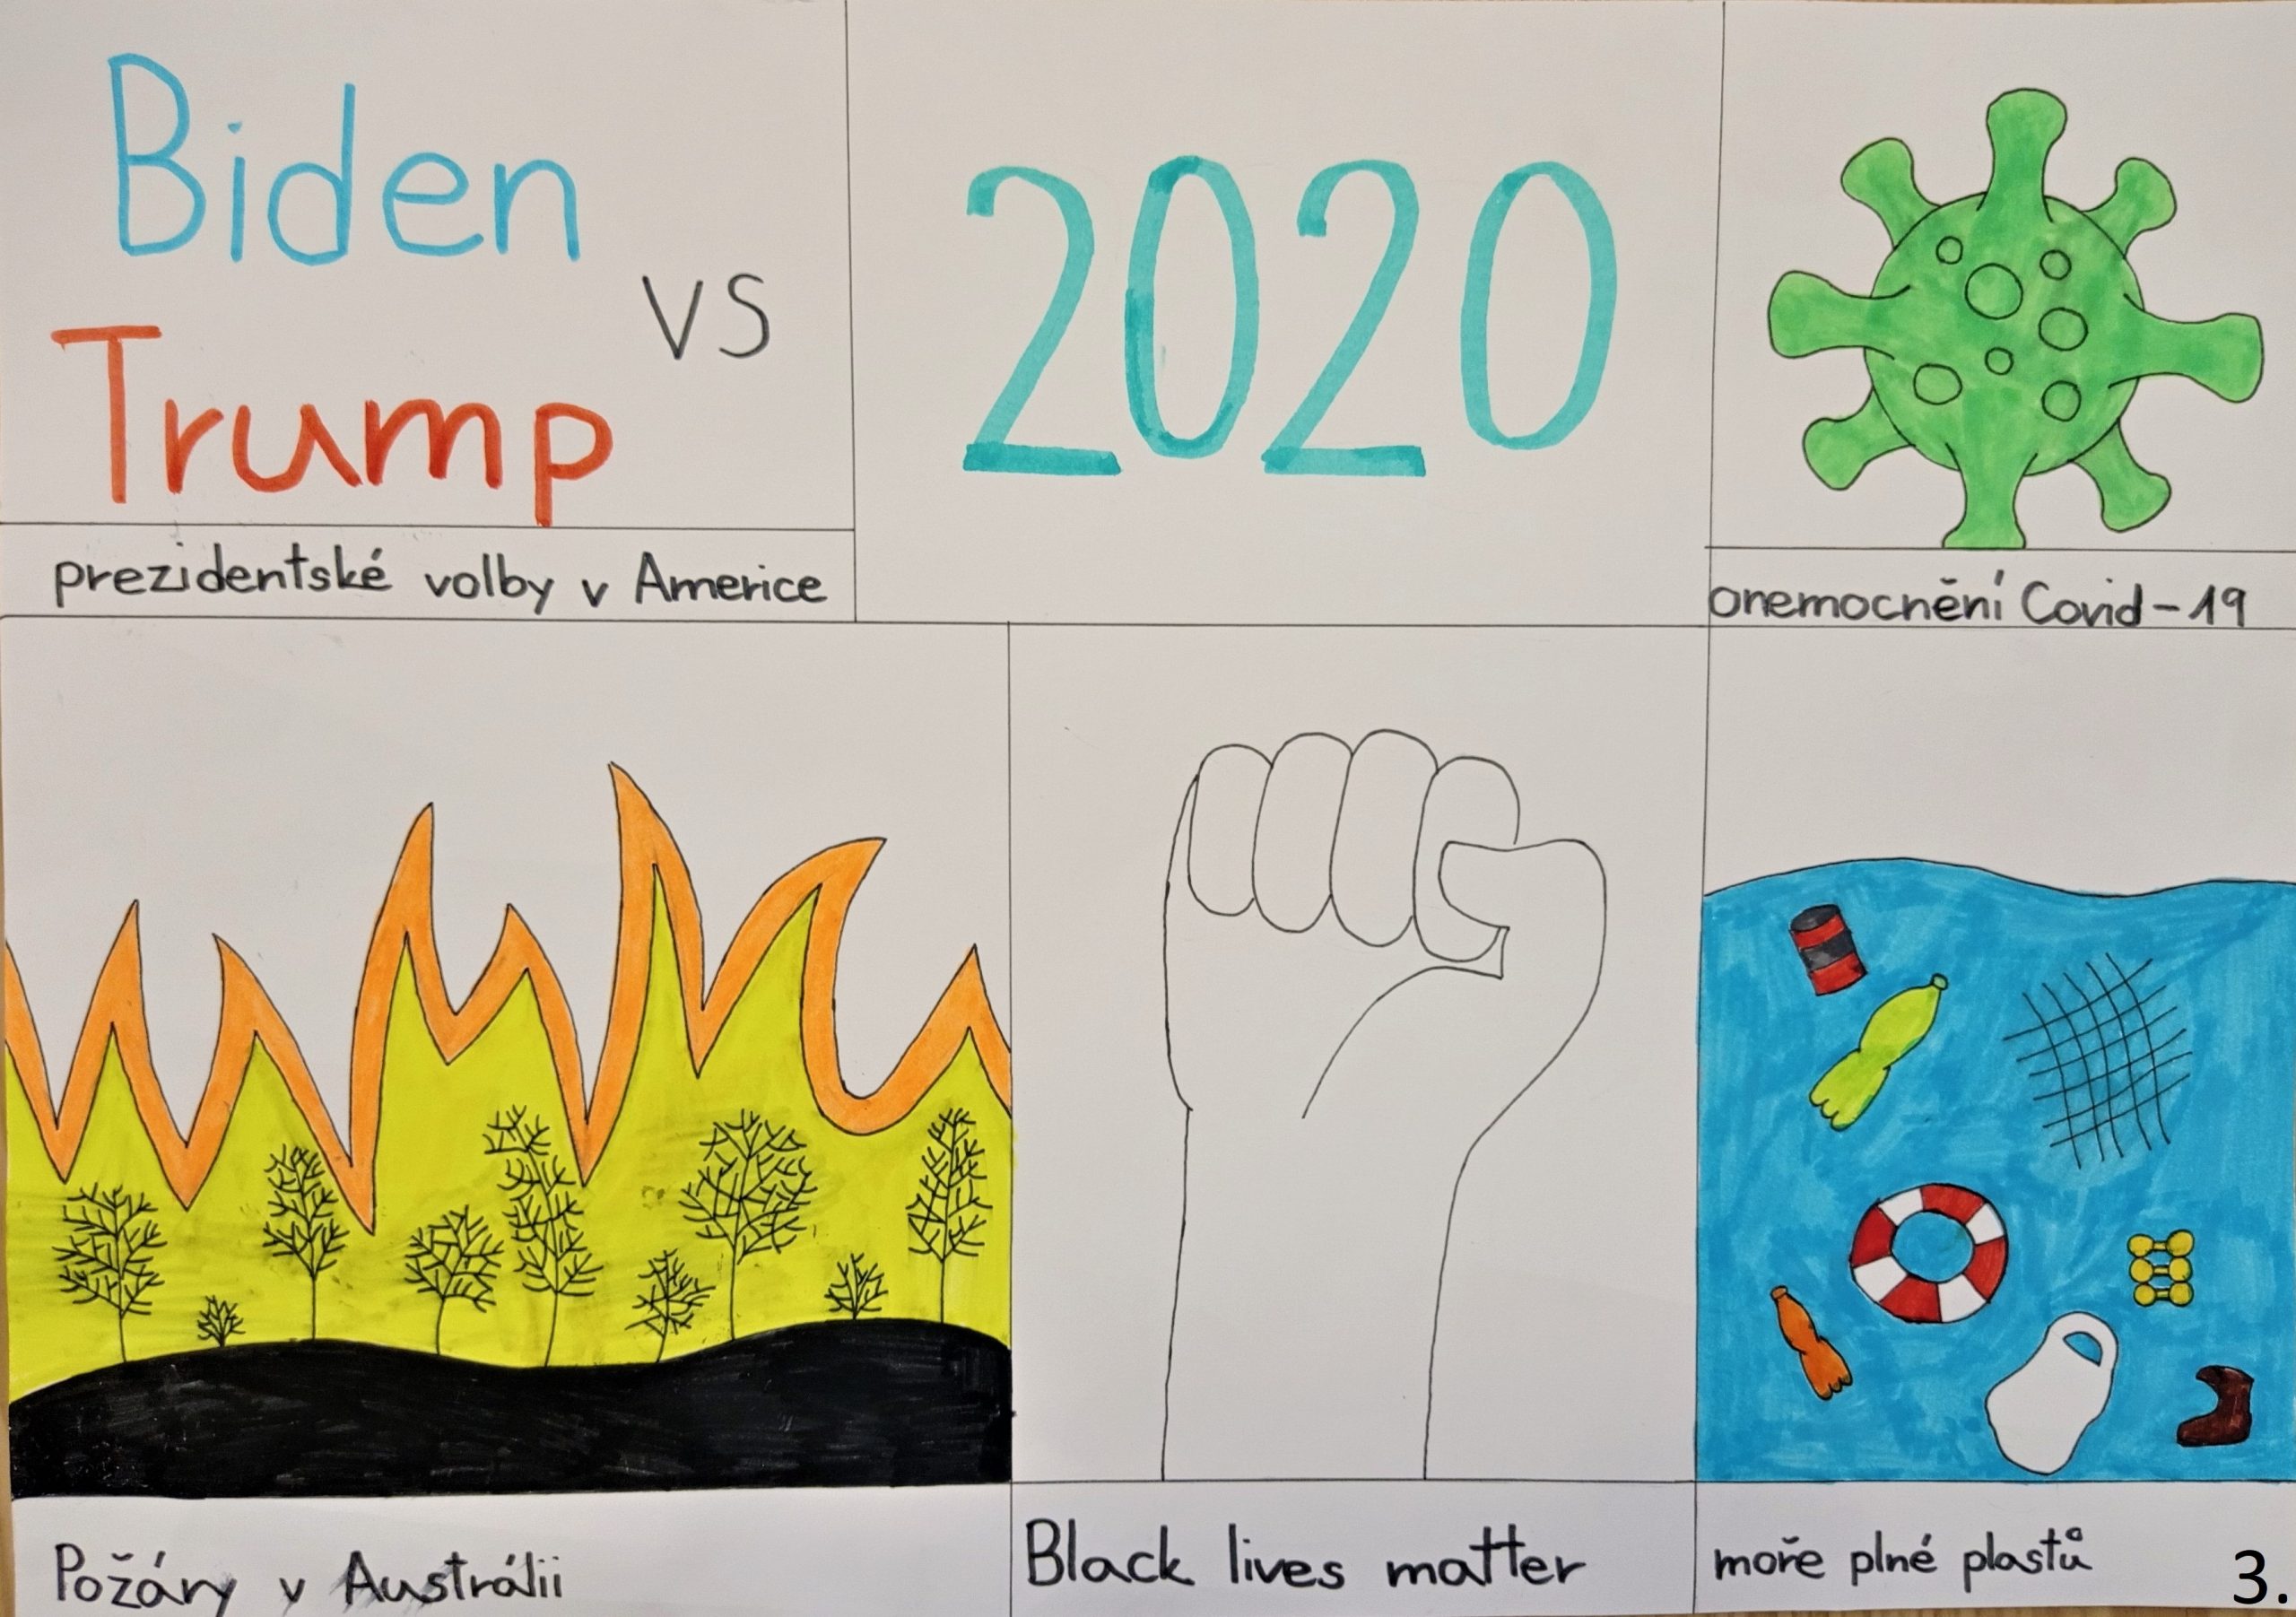 Biden
vs
Trump
prezidentské volby v Americe
2020
onemocnění Covid-19
Požáry v Austrálii
Black lives matter
moře plné plastů
3.